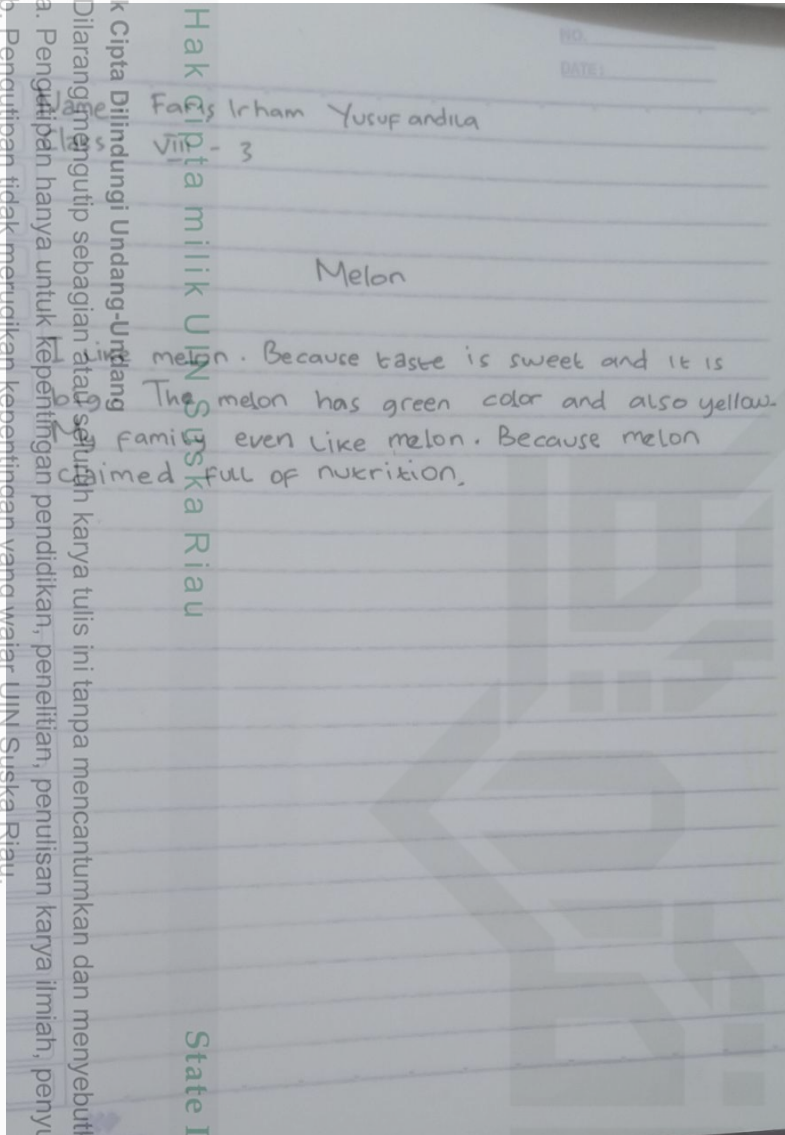 NO.
DATE:
Name Faris Irham Yusuf andila
Class VIII - 3
Melon
I Like melon. Because taste is sweet and it is
big. The melon has green color and also yellow.
My family even Like melon. Because melon
claimed full of nutrition.
Hak cipta milik UIN Suska Riau
State I
k Cipta Dilindungi Undang-Undang
Dilarang mengutip sebagian atau seluruh karya tulis ini tanpa mencantumkan dan menyebutk
a. Pengutipan hanya untuk kepentingan pendidikan, penelitian, penulisan karya ilmiah, penyu
b. Pengutipan tidak merugikan kepentingan yang wajar UIN Suska Riau.